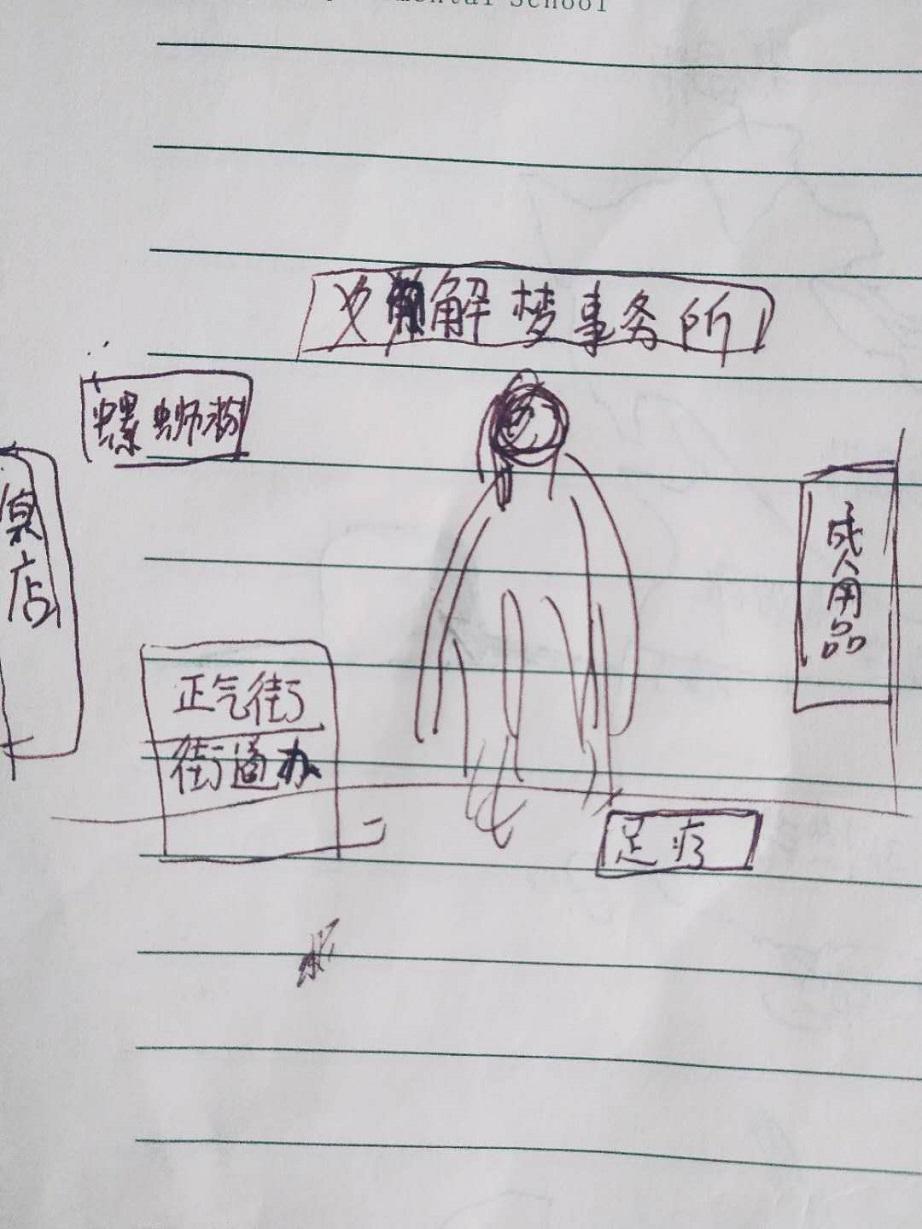 mental School
解梦事务所
螺蛳粉
店
成人用品
正气街
街道办
足疗